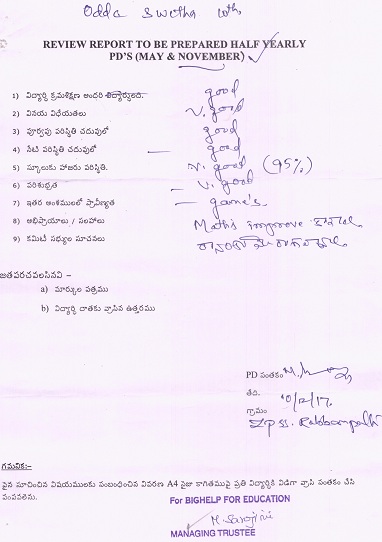 Odda Swetha 10th
REVIEW REPORT TO BE PREPARED HALF YEARLY
PD'S (MAY & NOVEMBER)
1) విద్యార్థి క్రమశిక్షణ అందరి విద్యార్థులది. good
2) వినయ విధేయతలు V. good
3) పూర్వపు పరిస్థితి చదువులో good
4) నేటి పరిస్థితి చదువులో good
5) స్కూలుకు హాజరు పరిస్థితి. V. good (95%)
6) పరిశుభ్రత V. good
7) ఇతర అంశములలో ప్రావీణ్యత game's
8) అభిప్రాయాలు / సలహాలు Maths improve కావాలి
9) కమిటీ సభ్యుల సూచనలు
జతపరచవలసినవి –
a) మార్కుల పత్రము
b) విద్యార్థి దాతకు వ్రాసిన ఉత్తరము
PD సంతకం
తేది.
గ్రామం
Z.P.S.S.
గమనిక:-
పైన సూచించిన విషయములకు సంబంధించిన వివరణ A4 సైజు కాగితముపై ప్రతి విద్యార్థికి విడిగా వ్రాసి సంతకం చేసి
పంపవలెను.
For BIGHELP FOR EDUCATION
M. Sarojini
MANAGING TRUSTEE